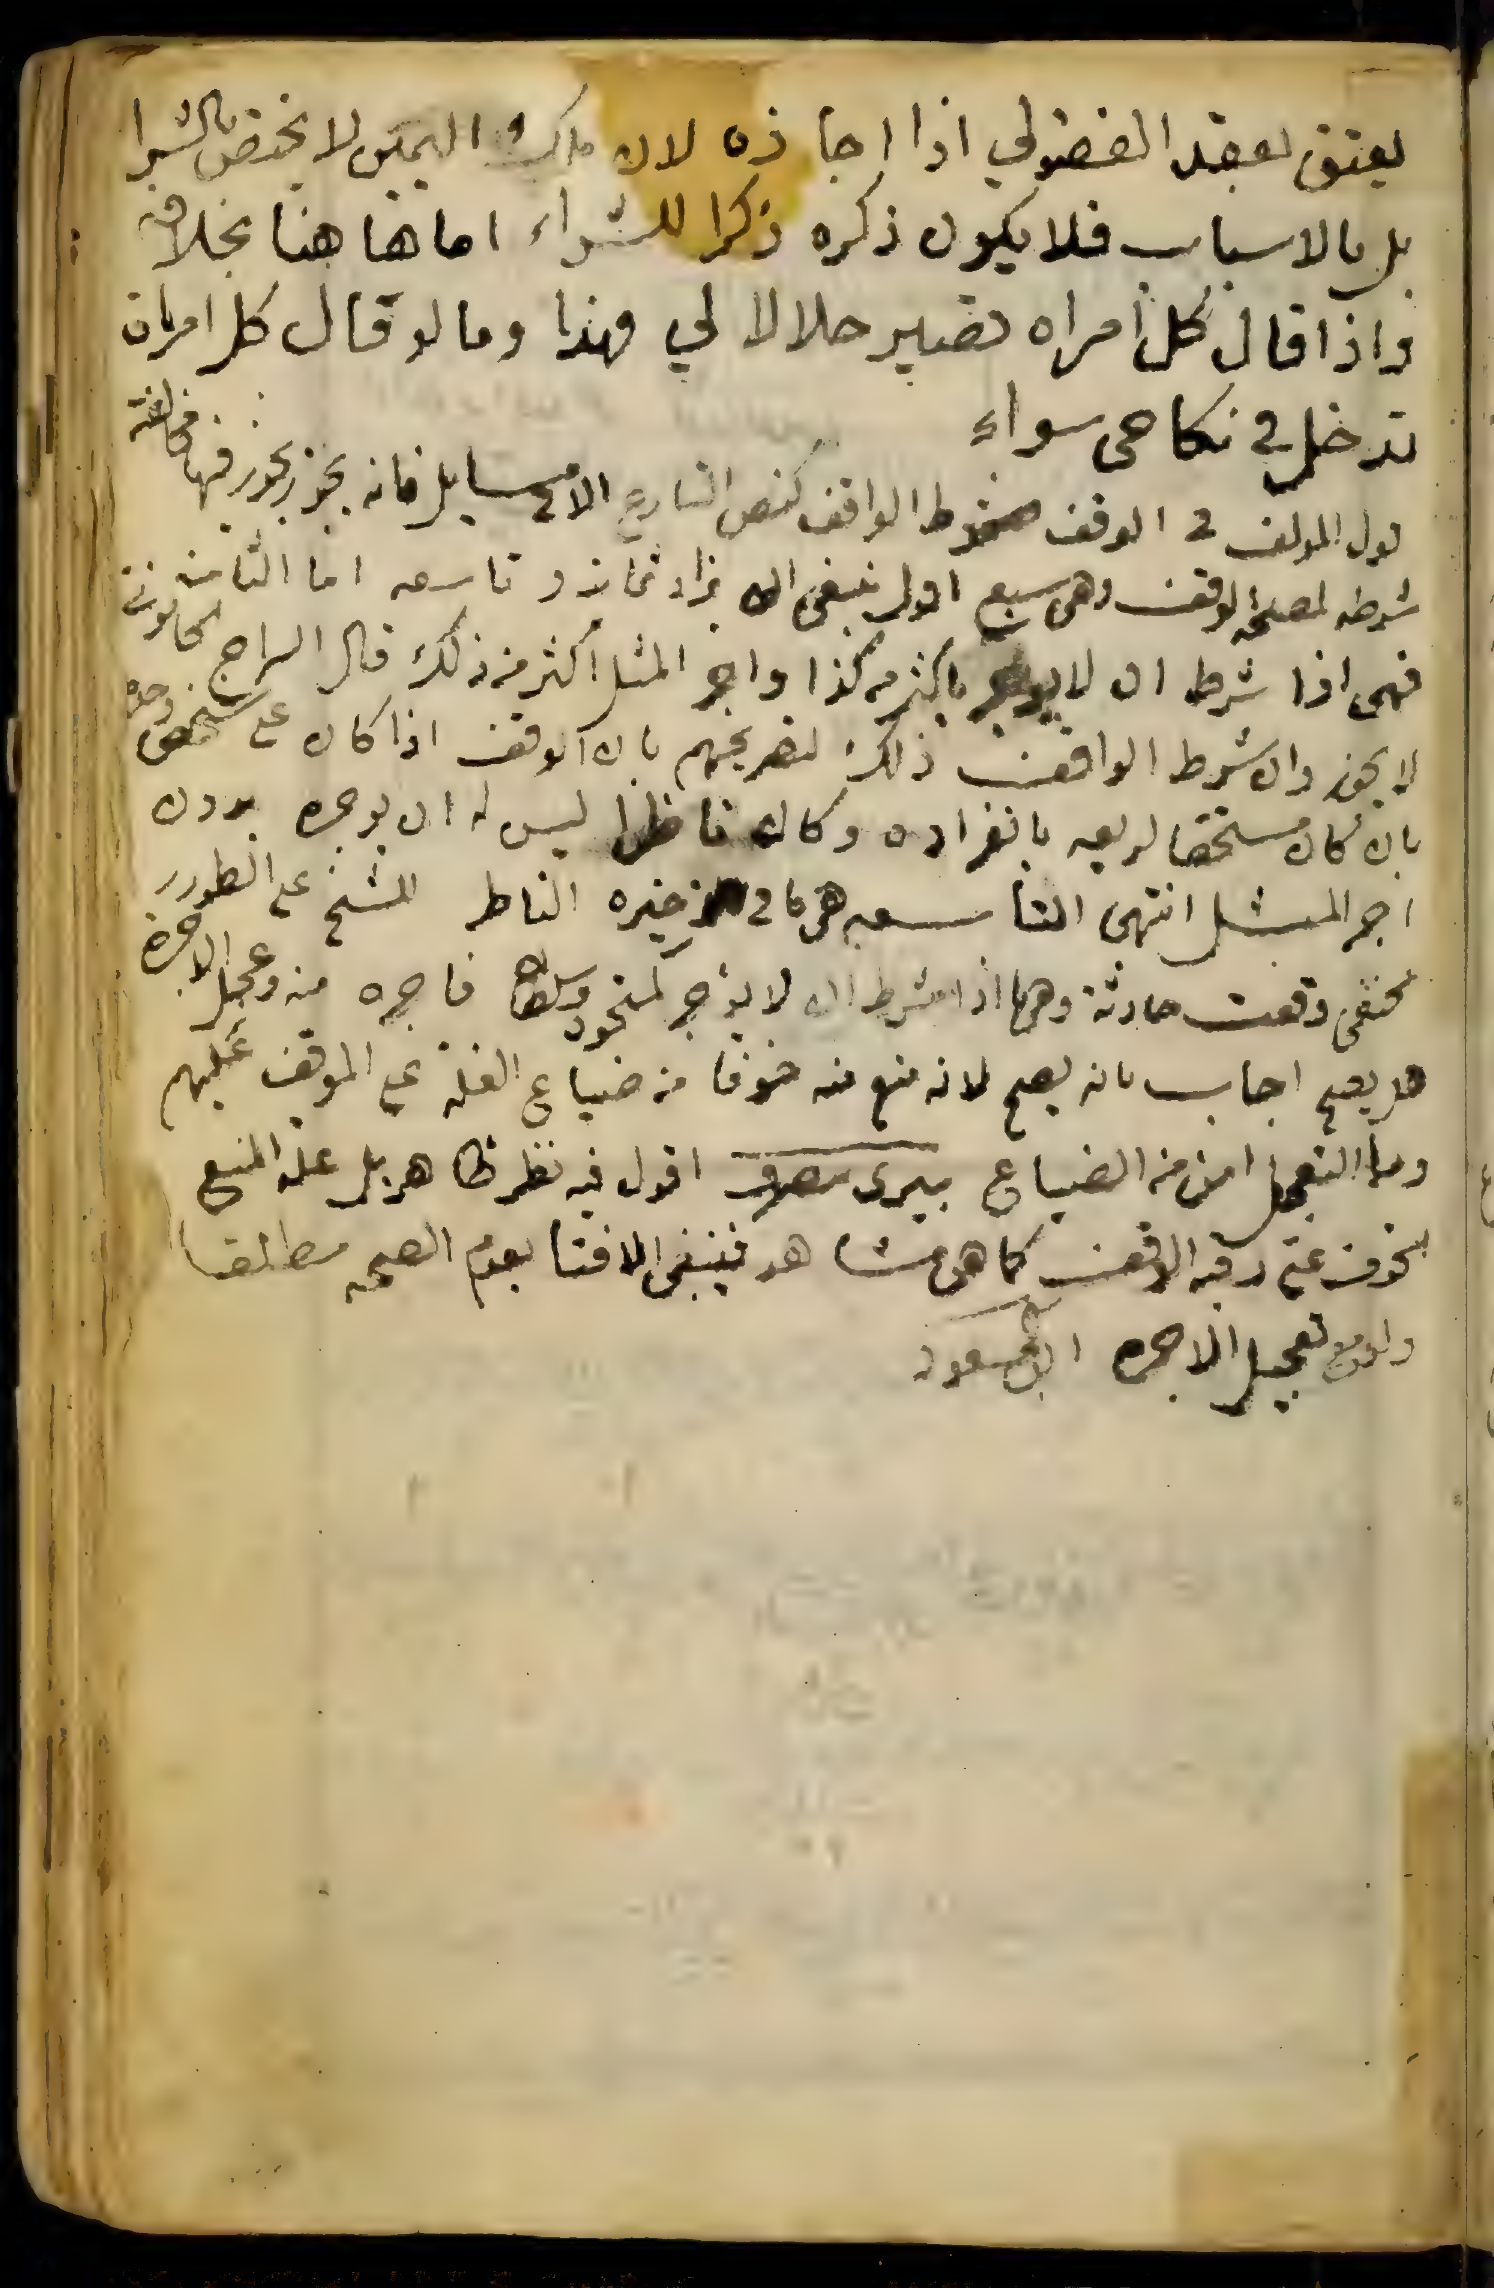 يعتق بعقد الفضولي اذا اجازه لان ملك اليمين لا يختص بالشرا
بل بالاسباب فلا يكون ذكره ذكرا للشراء اما هاهنا بخلافه
واذا قال كل امراه تصير حلالا لي فهذا وما لو قال كل امراة
تدخل في نكاحي سواء
قول المولف في الوقف شرط الواقف كنص الشارع الا في مسايل فانه يجوز يجوز فيها مخالفة
شرطه لمصلحة الوقف وهي سبع اقول ينبغي ان يزاد ثمانية وتاسعه اما الثامنة
فهي اذا شرط ان لا يوجر باكثر من كذا واجر المثل اكثر من ذلك قال السراج الحانوتي
لا يجوز وان شرط الواقف ذلك لتصريحهم بان الوقف اذا كان على شخص وحده
بان كان مستحقا لريعه بانفراده وكان ناظرا ليس له ان يوجره بدون
اجر المثل انتهى التاسعه هي ما في الناظر للشيخ على الطوري
حنفي وقعت حادثة وهي ما اذا شرط ان لا يؤجر لمتجوه فاجره منه وعجل الاجرة
هل يصح اجاب بانه يصح لانه منع منه خوفا من ضياع الغلة على الموقوف عليهم
ومع التعجيل امن من الضياع بيرى اقول فيه نظر ظاهر بل علة المنع
الخوف على رقبه الوقف كما هو مشاهد فينبغي الافتا بعدم الصحه مطلقا
ولو مع تعجيل الاجره ابو السعود